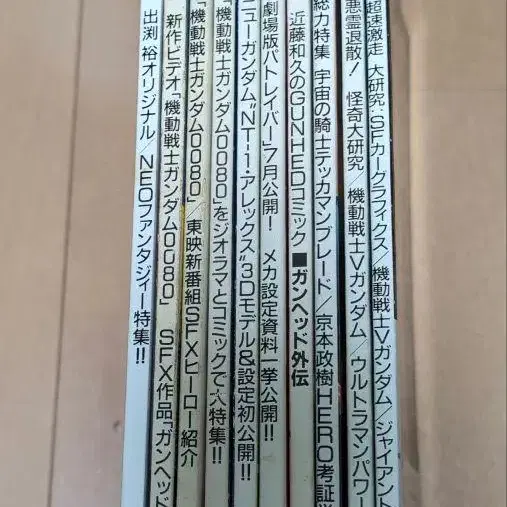 超速激走 大研究:SFカーグラフィクス/機動戦士Vガンダム/ジャイアント
悪霊退散! 怪奇大研究/機動戦士Vガンダム/ウルトラマンパワー
総力特集 宇宙の騎士テッカマンブレード/京本政樹HERO考証学
近藤和久のGUNHEDコミック■ガンヘッド外伝
劇場版パトレイバー7月公開! メカ設定資料一挙公開!!
ニューガンダム"NT-1・アレックス"3Dモデル&設定初公開!!
「機動戦士ガンダム0080」をジオラマとコミックで大特集!!
「機動戦士ガンダム0080」/東映新番組SFXヒーロー紹介
新作ビデオ「機動戦士ガンダム0080」 SFX作品「ガンヘッド
出渕 裕オリジナル/NEOファンタジィー特集!!